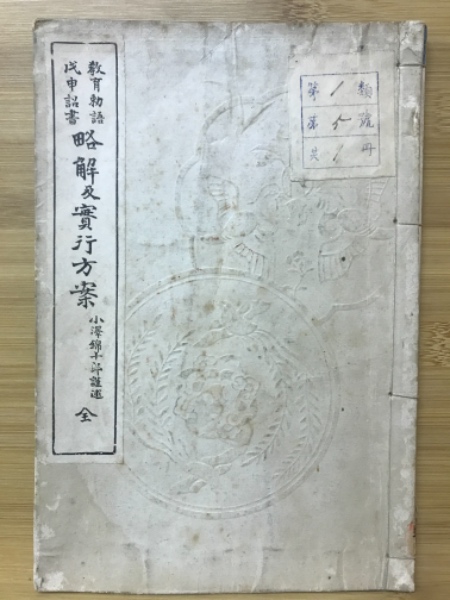 教育勅語
戊申詔書
略解及實行方案
小澤錦十郎謹述
全
第1類
第5號
共1冊